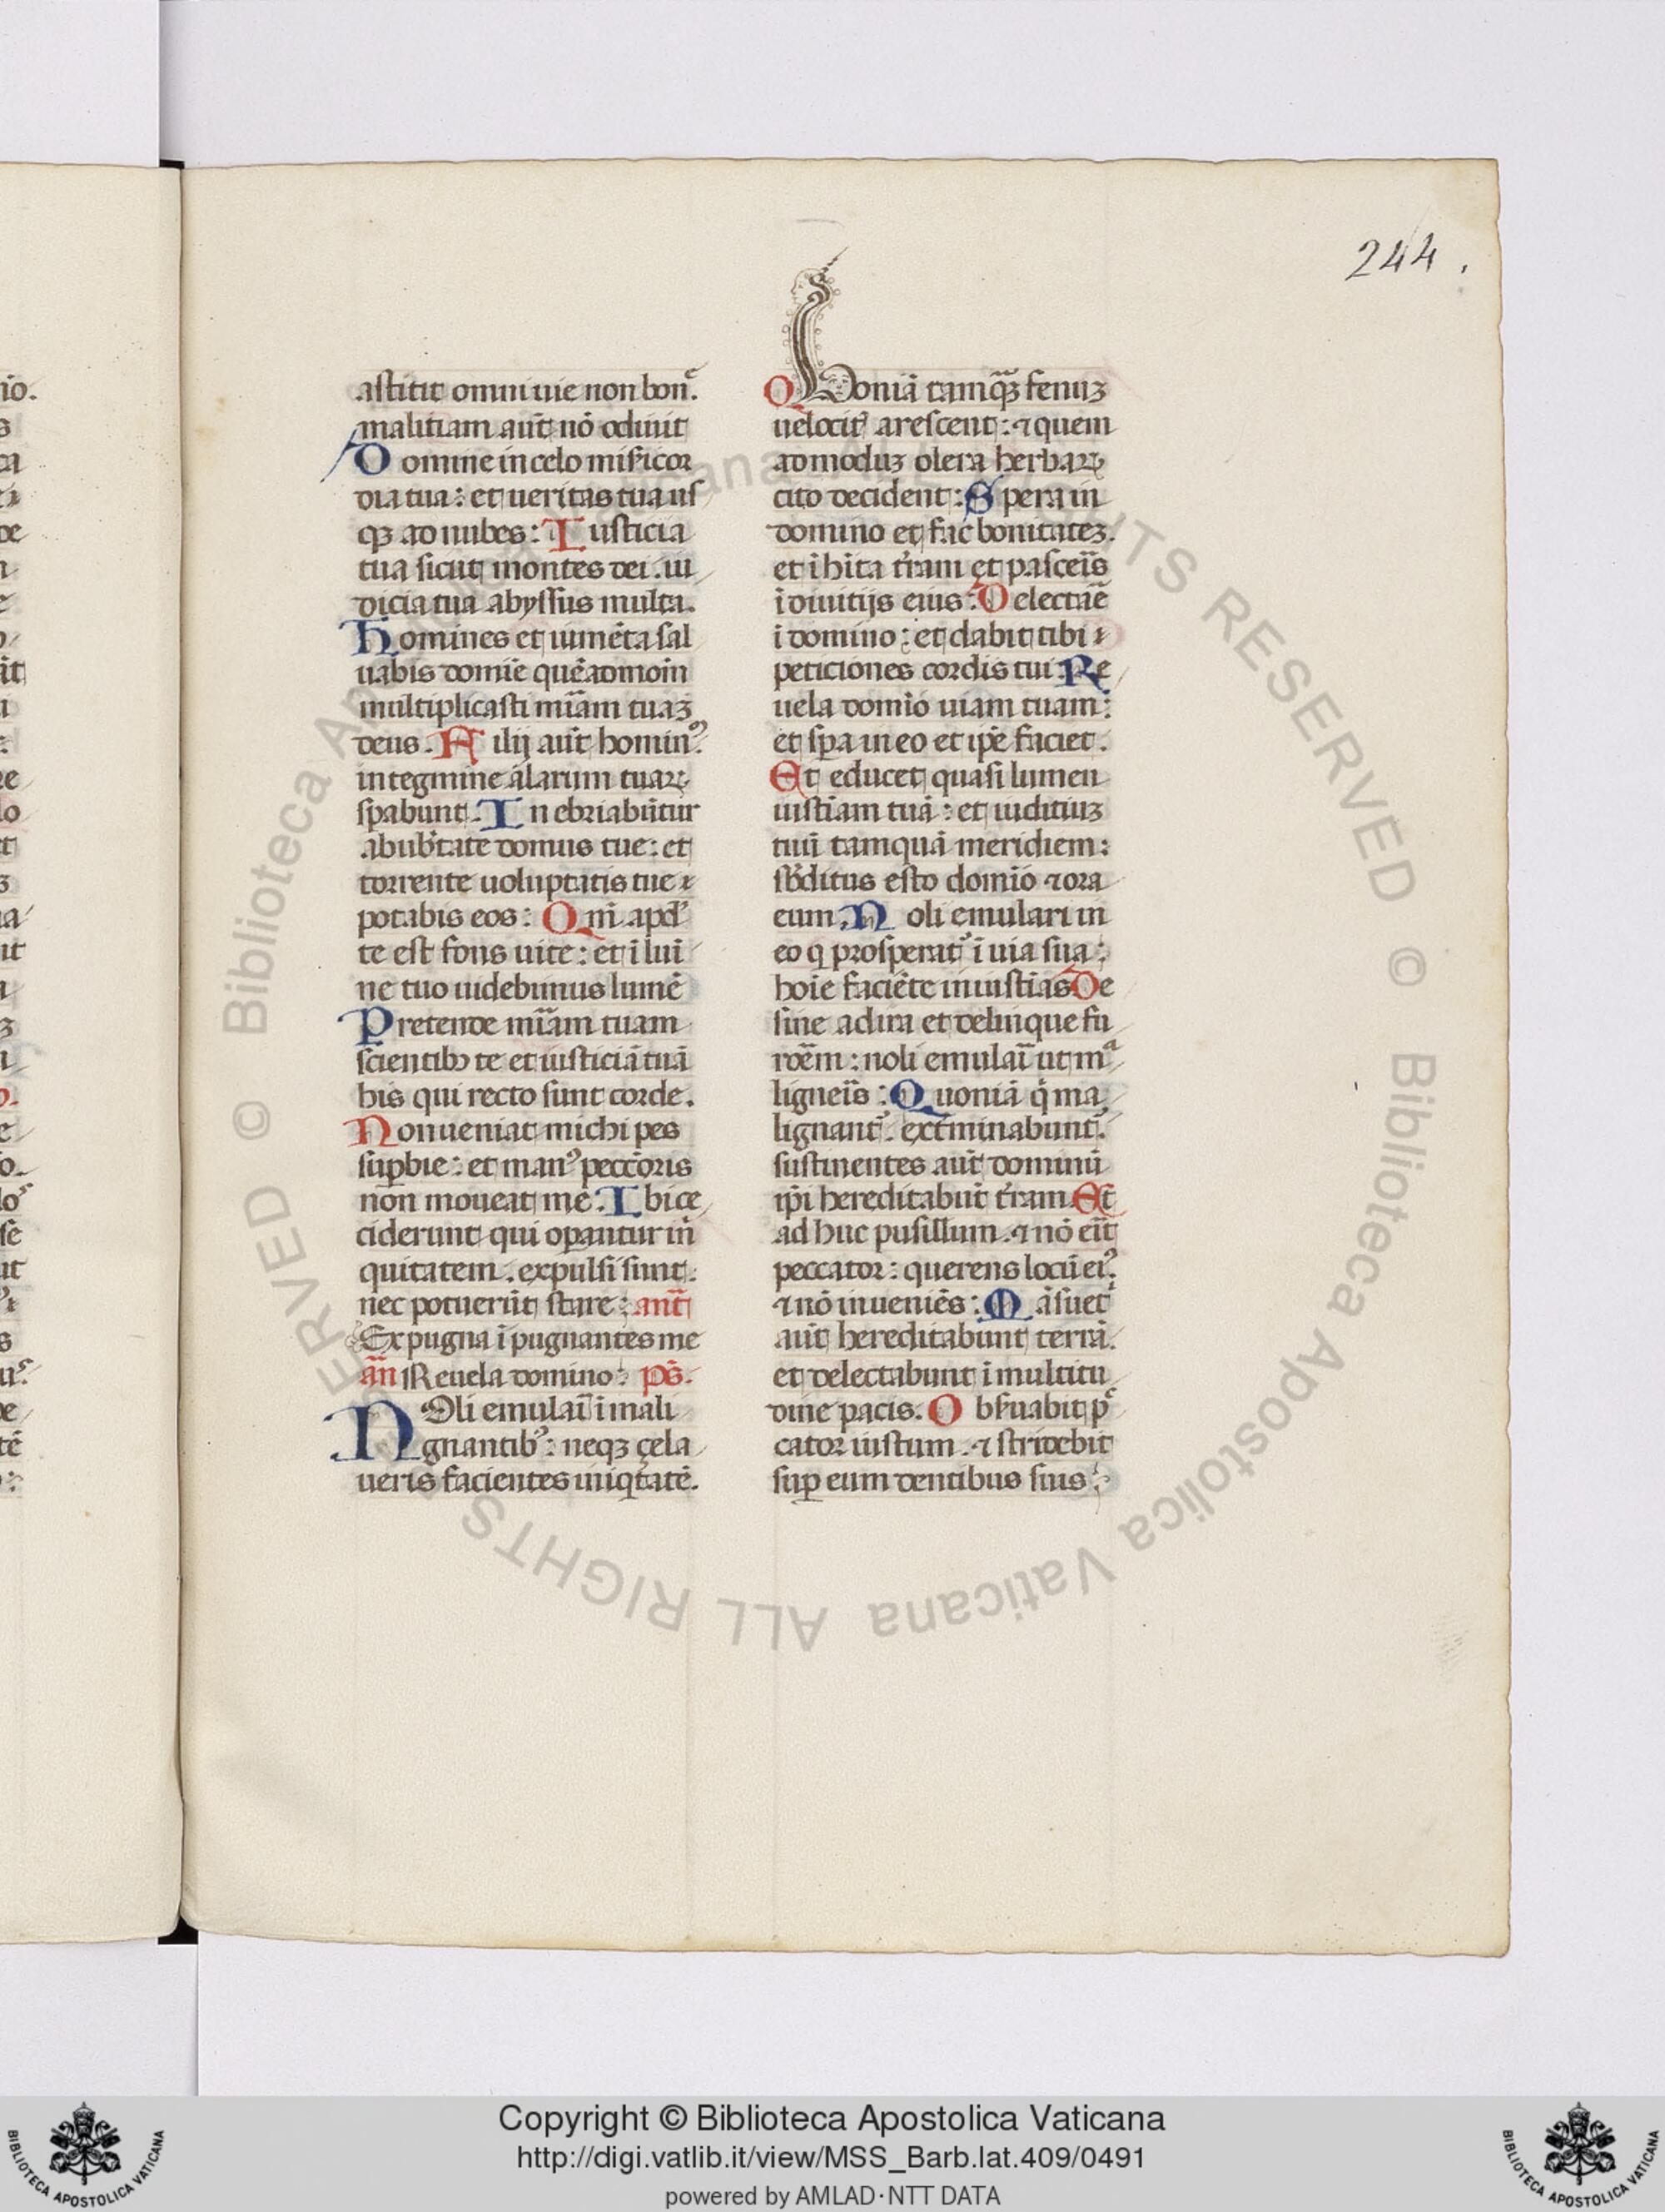 244.
astitit omni uie non bonᵉ.
malitiam aut̄ nō odiuit
Domine in celo mis̄icor
dia tua: et ueritas tua us
qȝ ad nubes: Iusticia
tua sicut montes dei. iu
dicia tua abyssus multa.
Homines et iumēta sal
uabis domīe quēadmoīn
multiplicasti mīam tuaȝ
deus. Filij aut̄ hominꝰ
in tegmine alarum tuarꝫ
sꝑabunt. Inebriabūtur
ab ub̄tate domus tue: et
torrente uoluptatis tue
potabis eos: Qm̄ apd̓
te est fons uite: et ī lui
ne tuo uidebimus lumē
Pretende mīam tuam
scientibȝ te et iusticiā tuā
his qui recto sunt corde.
Non ueniat michi pes
suꝑbie: et manꝰ pecc̄oris
non moueat me: Ibi ce
ciderunt qui oꝑantur in̄
quitatem. expulsi sunt.
nec potuerūt stare: ant̄
Expugna īpugnantes me
an̄ Reuela domino: ps̄.
Noli emulaī ī mali
gnantibꝰ: neqȝ çela
ueris facientes iniqͥtatē.
Qvoniā tamqᵃȝ fenuȝ
uelocit̓ arescent: ⁊ quem
admoduȝ olera herbarꝫ
cito decident: Spera in
domino et fac bonitateȝ.
et īhita t̄ram et pasceīs
ī diuitijs eius: Delectaē
ī domino: et dabit tibi
peticiones cordis tui: Re
uela domīo uiam tuam:
et sꝑa in eo et ip̄e faciet.
Et educet quasi lumen
iustīam tuā: et iuditiuȝ
tuū tamquā meridiem:
sb̄ditus esto domīo ⁊ ora
eum. Noli emulari in
eo q prosperat̓ ī uia sua:
hoīe faciēte iniustīas De
sine ad ira et delinque fu
roēm: noli emulaī ut mᵃ
ligneīs: Quoniā qͥ ma
lignant̓. ext̄minabunt̓.
sustinentes aut̄ dominū
ip̄i hereditabūt t̄ram. Et
ad huc pusillum. ⁊ nō eīt
peccator: querens locū eiꝰ.
⁊ nō inueniēs: Māsuetⁱ
aut̄ hereditabunt terrā.
et delectabunt ī multitu
dine pacis. Obs̄uabit pᵉ
cator iustum. ⁊ stridebit
suꝑ eum dentibus suis:
© Biblioteca Apostolica Vaticana ALL RIGHTS RESERVED © Biblioteca Apostolica Vaticana ALL RIGHTS RESERVED
Copyright © Biblioteca Apostolica Vaticana
http://digi.vatlib.it/view/MSS_Barb.lat.409/0491
powered by AMLAD·NTT DATA
BIBLIOTECA APOSTOLICA VATICANA
BIBLIOTECA APOSTOLICA VATICANA